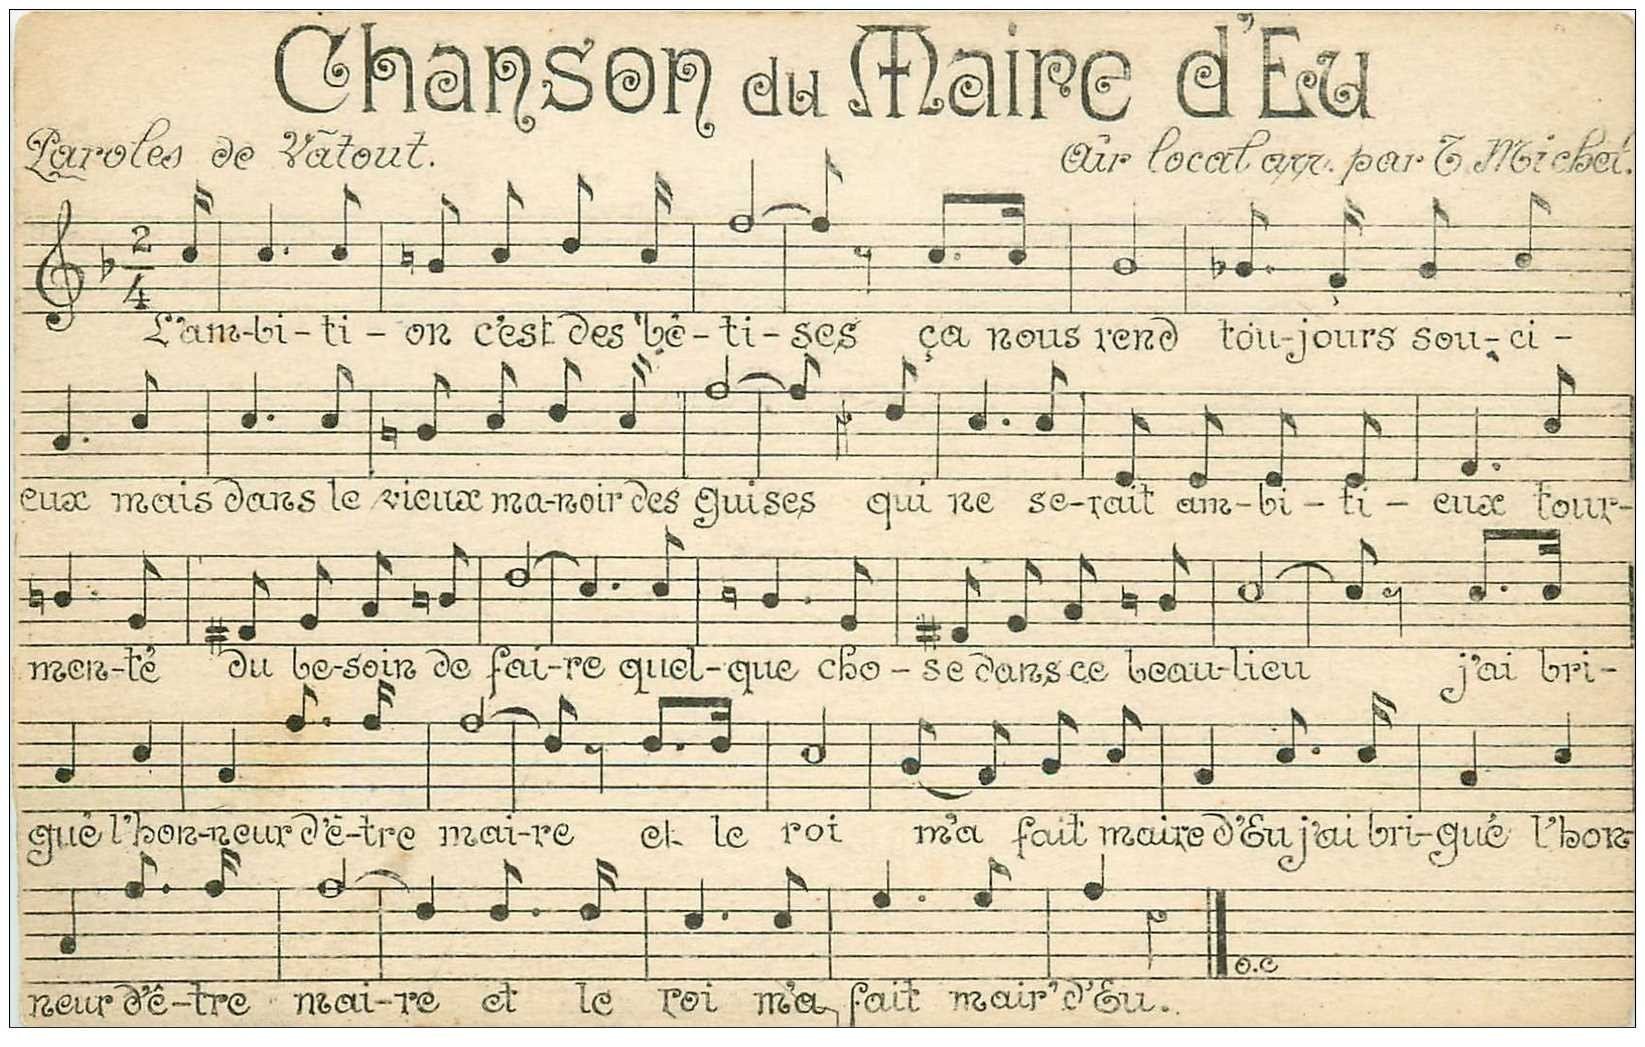 Chanson du Maire d'Eu
Paroles de Vatout. Air local arr. par T. Michel.
2
4
L'am-bi-ti-on c'est des bê-ti-ses ça nous rend tou-jours sou-ci-
eux mais dans le vieux ma-noir des guises qui ne se-rait am-bi-ti-eux tour-
men-té du be-soin de fai-re quel-que cho-se dans ce beau-lieu j'ai bri-
gué l'hon-neur d'ê-tre mai-re et le roi m'a fait maire d'Eu j'ai bri-gué l'hon-
O.C
neur d'ê-tre mai-re et le roi m'a fait mair' d'Eu.